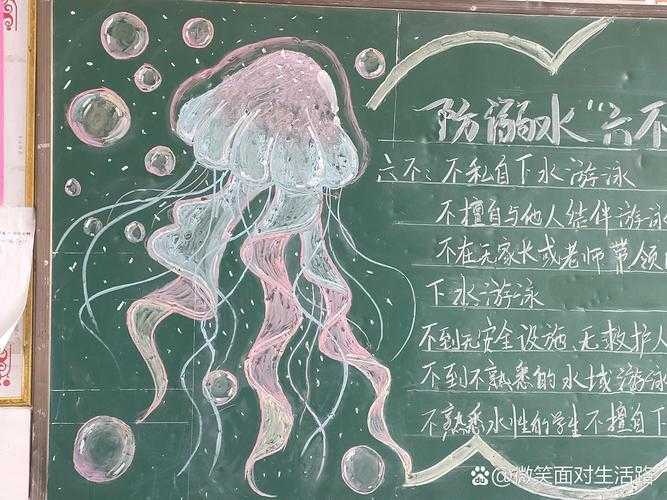 防溺水“六不
六不：不私自下水游泳
不擅自与他人结伴游泳
不在无家长或老师带领
下水游泳
不到无安全设施、无救护人
不到不熟悉的水域游泳
不熟悉水性的学生不擅自下
@微笑面对生活路